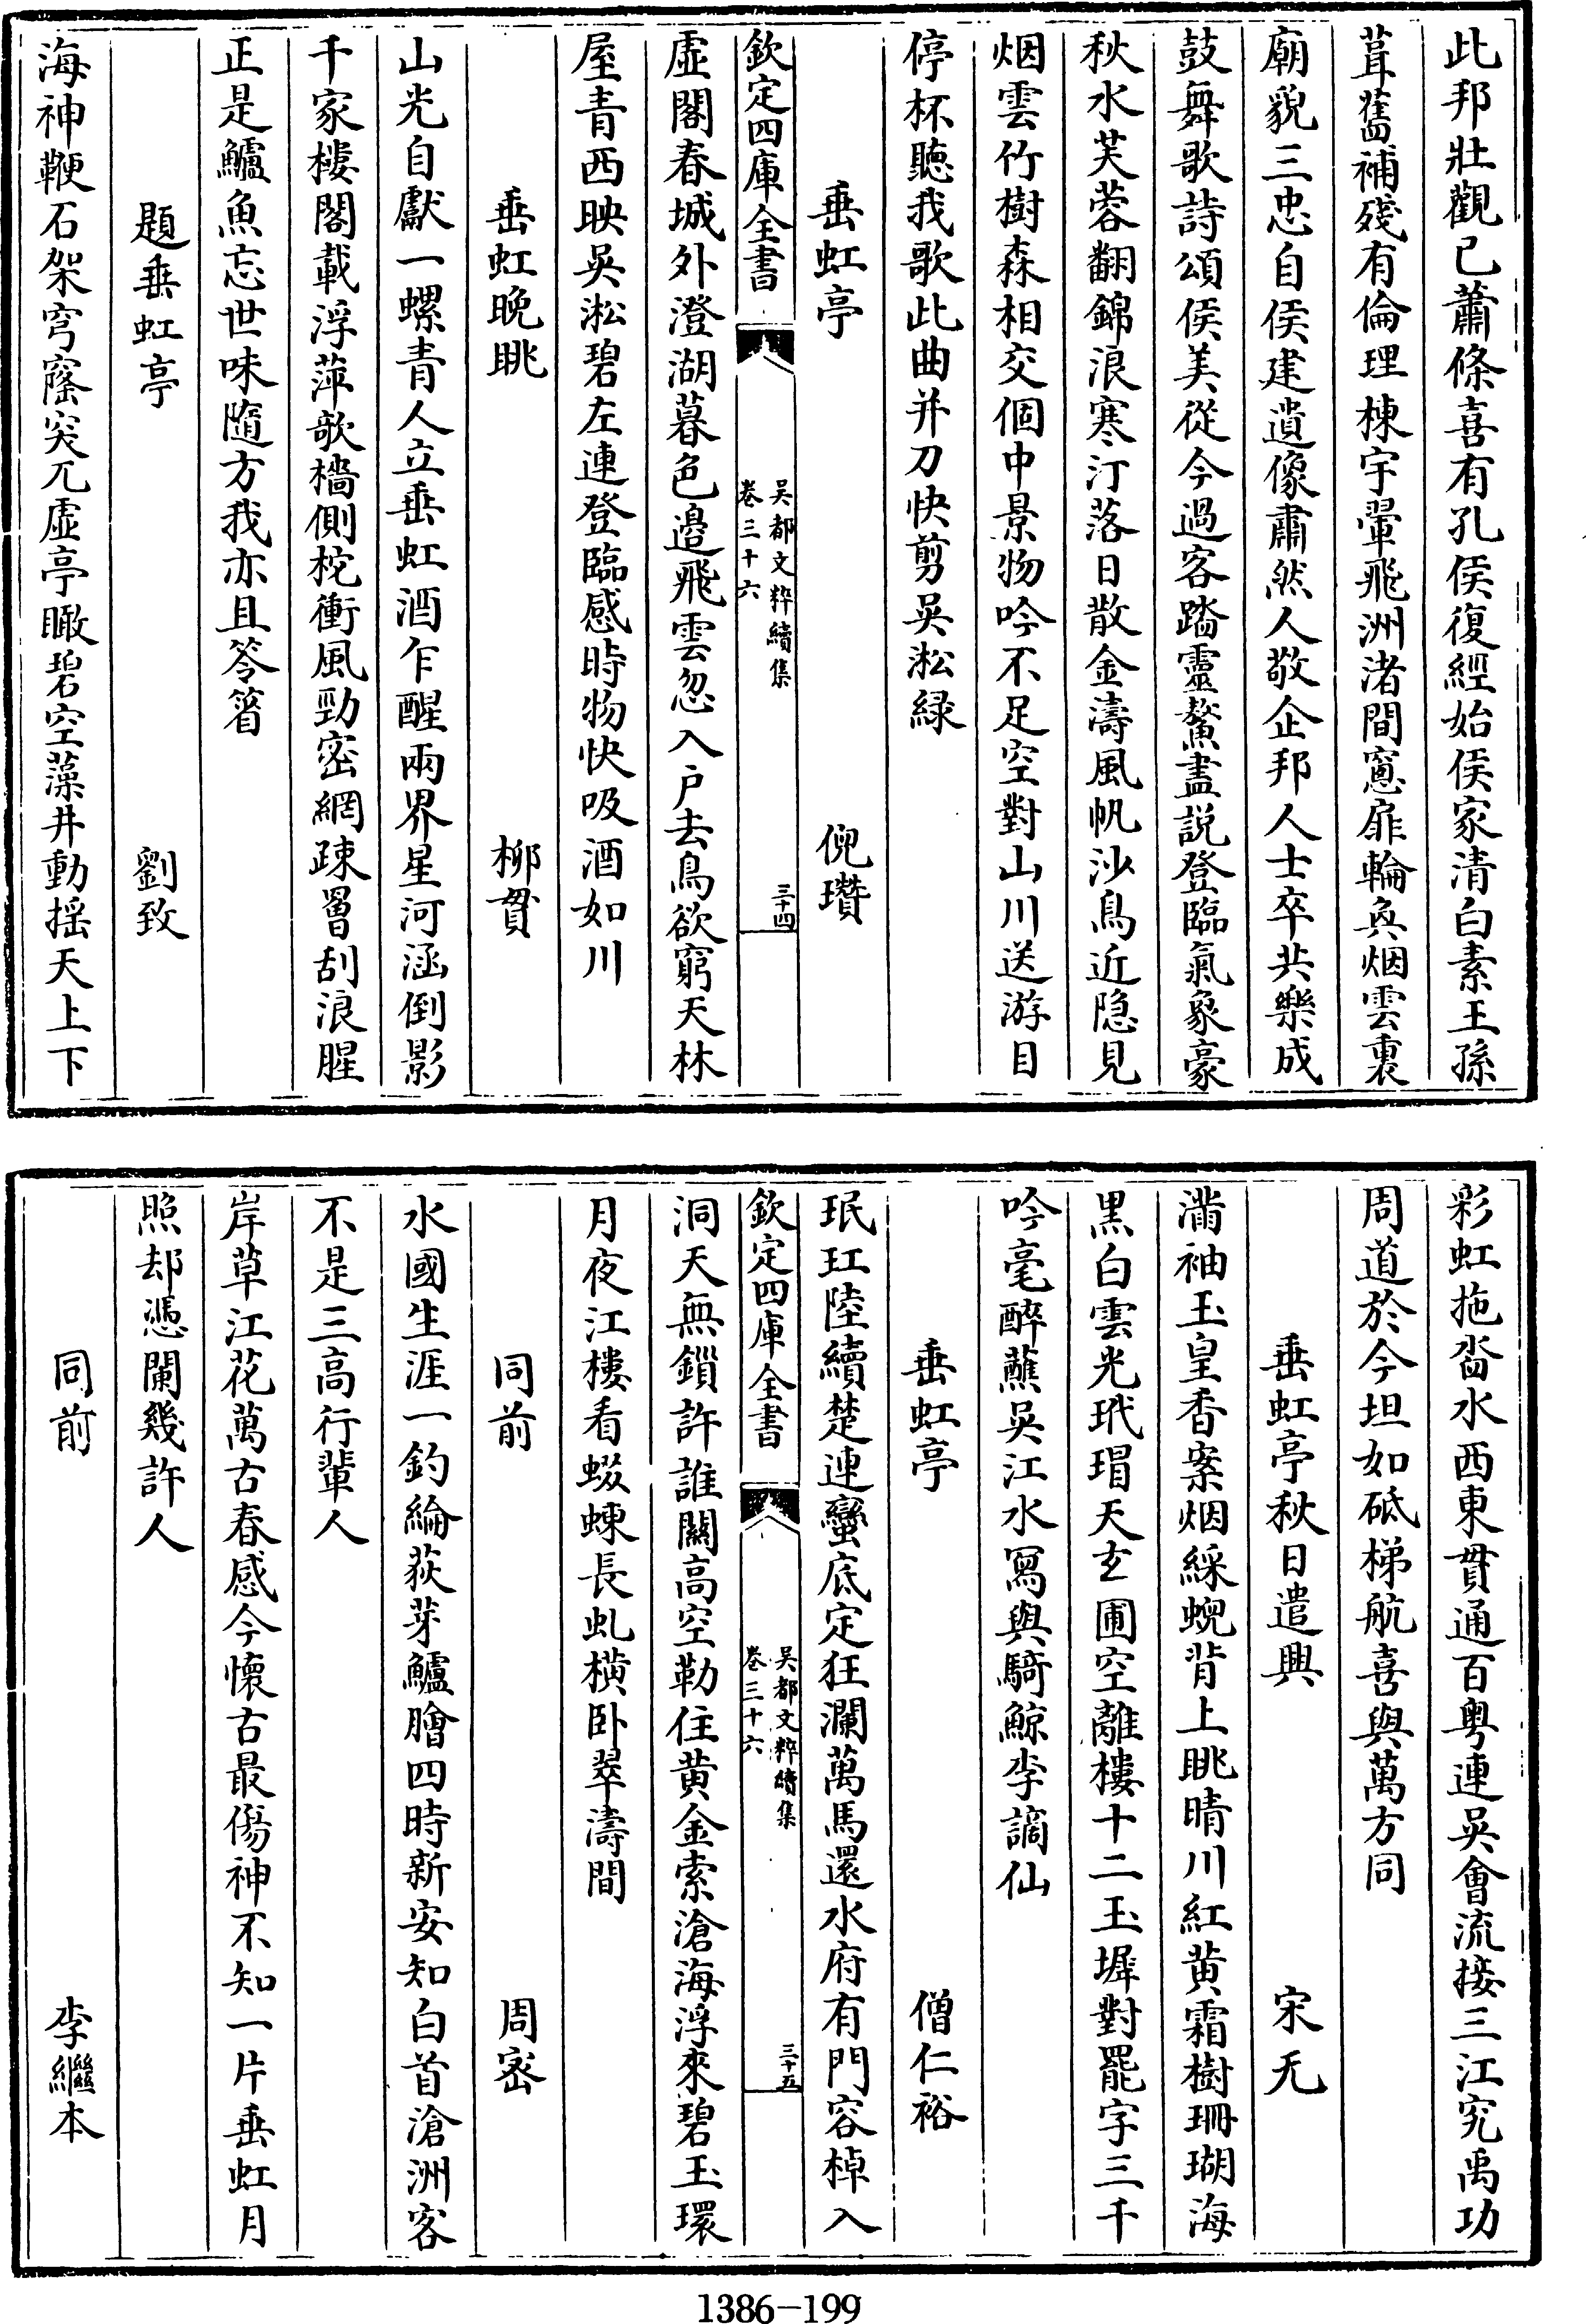 此邦壯觀已蕭條喜有孔侯復經始侯家清白素王孫
葺舊補殘有倫理棟宇翬飛洲渚間窻扉輪奐烟雲裏
廟貌三忠自侯建遺像肅然人敬企邦人士卒共樂成
鼓舞歌詩頌侯美從今過客踏靈鰲盡説登臨氣象豪
秋水芙蓉翻錦浪寒汀落日散金濤風帆沙鳥近隱見
烟雲竹樹森相交個中景物吟不足空對山川送游目
停杯聽我歌此曲并刀快剪吳淞緑
垂虹亭 倪瓚
欽定四庫全書 吳都文粹續集 卷三十六 三十四
虛閣春城外澄湖暮色邉飛雲忽入户去鳥欲窮天林
屋青西映吳淞碧左連登臨感時物快吸酒如川
垂虹晚眺 柳貫
山光自獻一螺青人立垂虹酒乍醒兩界星河涵倒影
千家樓閣載浮萍欹檣側柁衝風勁密網疎罾刮浪腥
正是鱸魚忘世味隨方我亦且笭箵
題垂虹亭 劉致
海神鞭石架穹窿突兀虛亭瞰碧空藻井動揺天上下
彩虹拖畓水西東貫通百粤連吳會流接三江究禹功
周道於今坦如砥梯航喜與萬方同
垂虹亭秋日遣興 宋无
滿袖玉皇香案烟綵蜺背上眺晴川紅黄霜樹珊瑚海
黒白雲光玳瑁天玄圃空離樓十二玉墀對罷字三千
吟毫醉蘸吳江水冩與騎鯨李謫仙
垂虹亭 僧仁裕
珉矼陸續楚連蠻底定狂瀾萬馬還水府有門容棹入
欽定四庫全書 吳都文粹續集 卷三十六 三十五
洞天無鎖許誰關高空勒住黄金索滄海浮來碧玉環
月夜江樓看蝃蝀長虬橫卧翠濤間
同前 周宻
水國生涯一釣綸荻芽鱸膾四時新安知白首滄洲客
不是三高行輩人
岸草江花萬古春感今懷古最傷神不知一片垂虹月
照却凴闌幾許人
同前 李繼本
1386-199